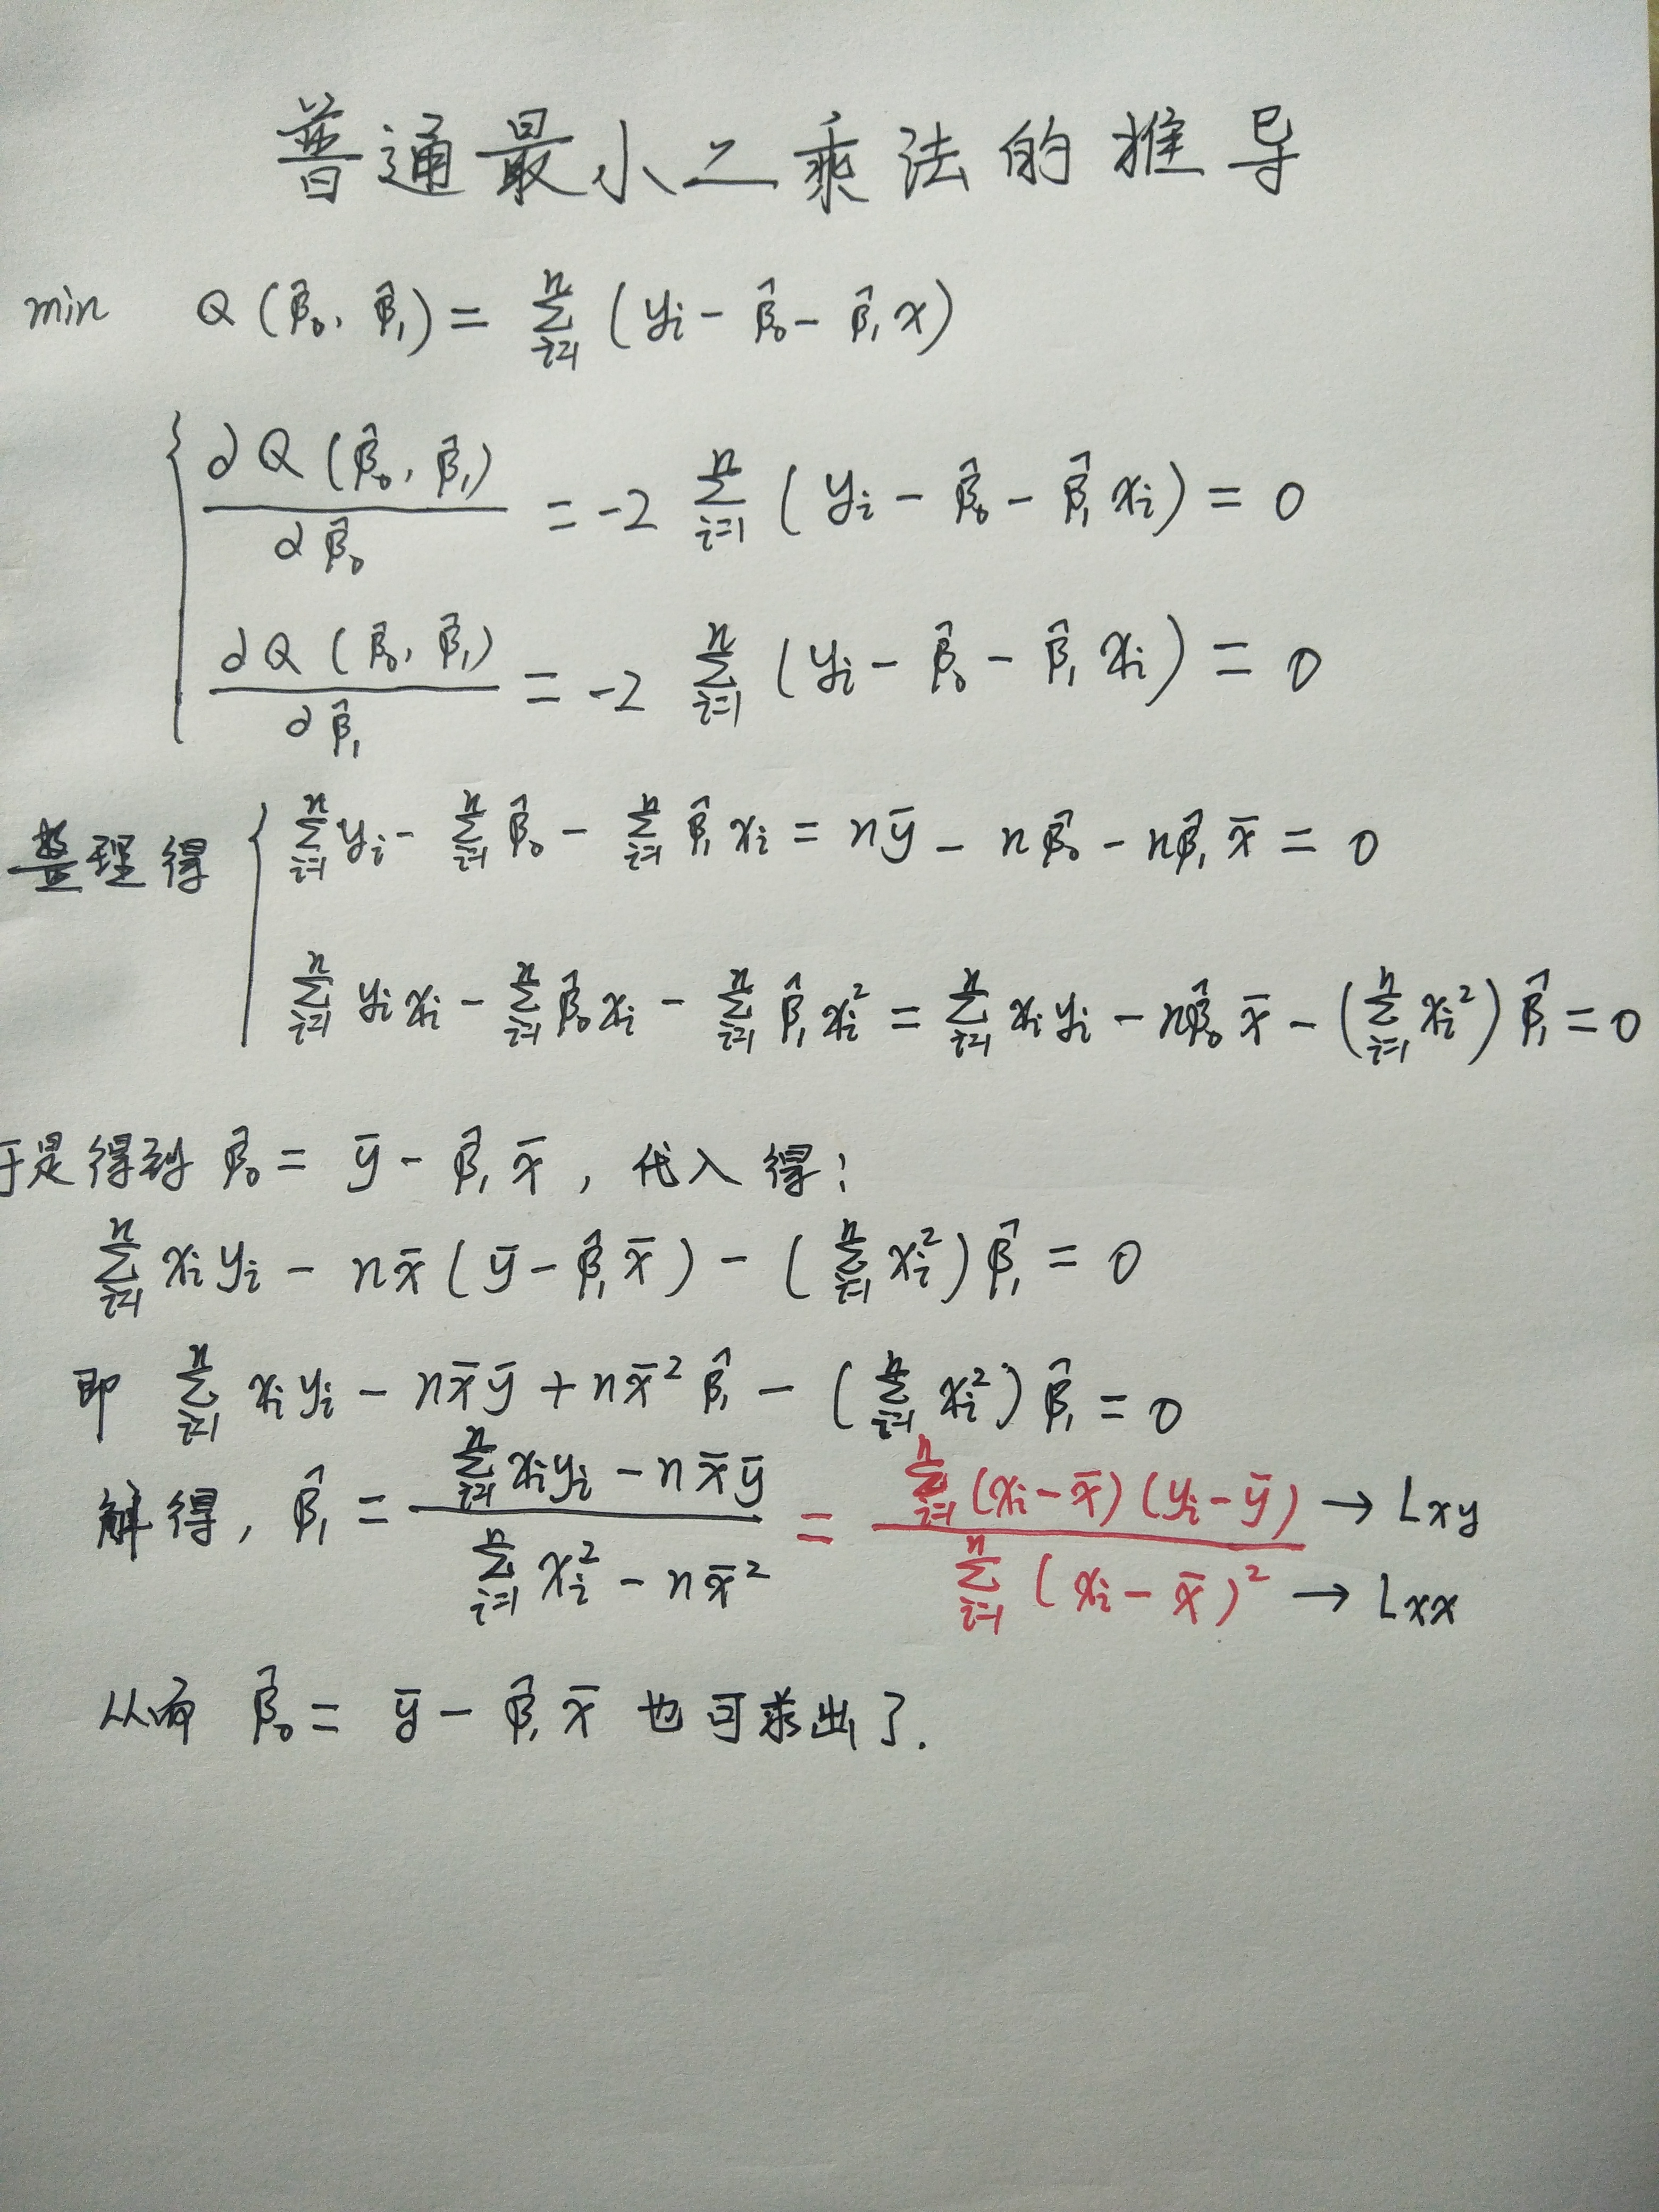 普通最小二乘法的推导
min Q(β̂₀, β̂₁) = ∑ᵢ₌₁ⁿ (yᵢ - β̂₀ - β̂₁x)
∂Q(β̂₀, β̂₁)/∂β̂₀ = -2 ∑ᵢ₌₁ⁿ (yᵢ - β̂₀ - β̂₁xᵢ) = 0
∂Q(β̂₀, β̂₁)/∂β̂₁ = -2 ∑ᵢ₌₁ⁿ (yᵢ - β̂₀ - β̂₁xᵢ) = 0
整理得 { ∑ᵢ₌₁ⁿ yᵢ - ∑ᵢ₌₁ⁿ β̂₀ - ∑ᵢ₌₁ⁿ β̂₁xᵢ = nȳ - nβ̂₀ - nβ̂₁x̄ = 0
∑ᵢ₌₁ⁿ yᵢxᵢ - ∑ᵢ₌₁ⁿ β̂₀xᵢ - ∑ᵢ₌₁ⁿ β̂₁xᵢ² = ∑ᵢ₌₁ⁿ xᵢyᵢ - nβ̂₀x̄ - (∑ᵢ₌₁ⁿ xᵢ²)β̂₁ = 0
于是得到 β̂₀ = ȳ - β̂₁x̄, 代入得:
∑ᵢ₌₁ⁿ xᵢyᵢ - nx̄(ȳ - β̂₁x̄) - (∑ᵢ₌₁ⁿ xᵢ²)β̂₁ = 0
即 ∑ᵢ₌₁ⁿ xᵢyᵢ - nx̄ȳ + nx̄²β̂₁ - (∑ᵢ₌₁ⁿ xᵢ²)β̂₁ = 0
解得, β̂₁ = (∑ᵢ₌₁ⁿ xᵢyᵢ - nx̄ȳ)/(∑ᵢ₌₁ⁿ xᵢ² - nx̄²) = (∑ᵢ₌₁ⁿ (xᵢ - x̄)(yᵢ - ȳ))/(∑ᵢ₌₁ⁿ (xᵢ - x̄)²) → Lxy → Lxx
从而 β̂₀ = ȳ - β̂₁x̄ 也可求出了.